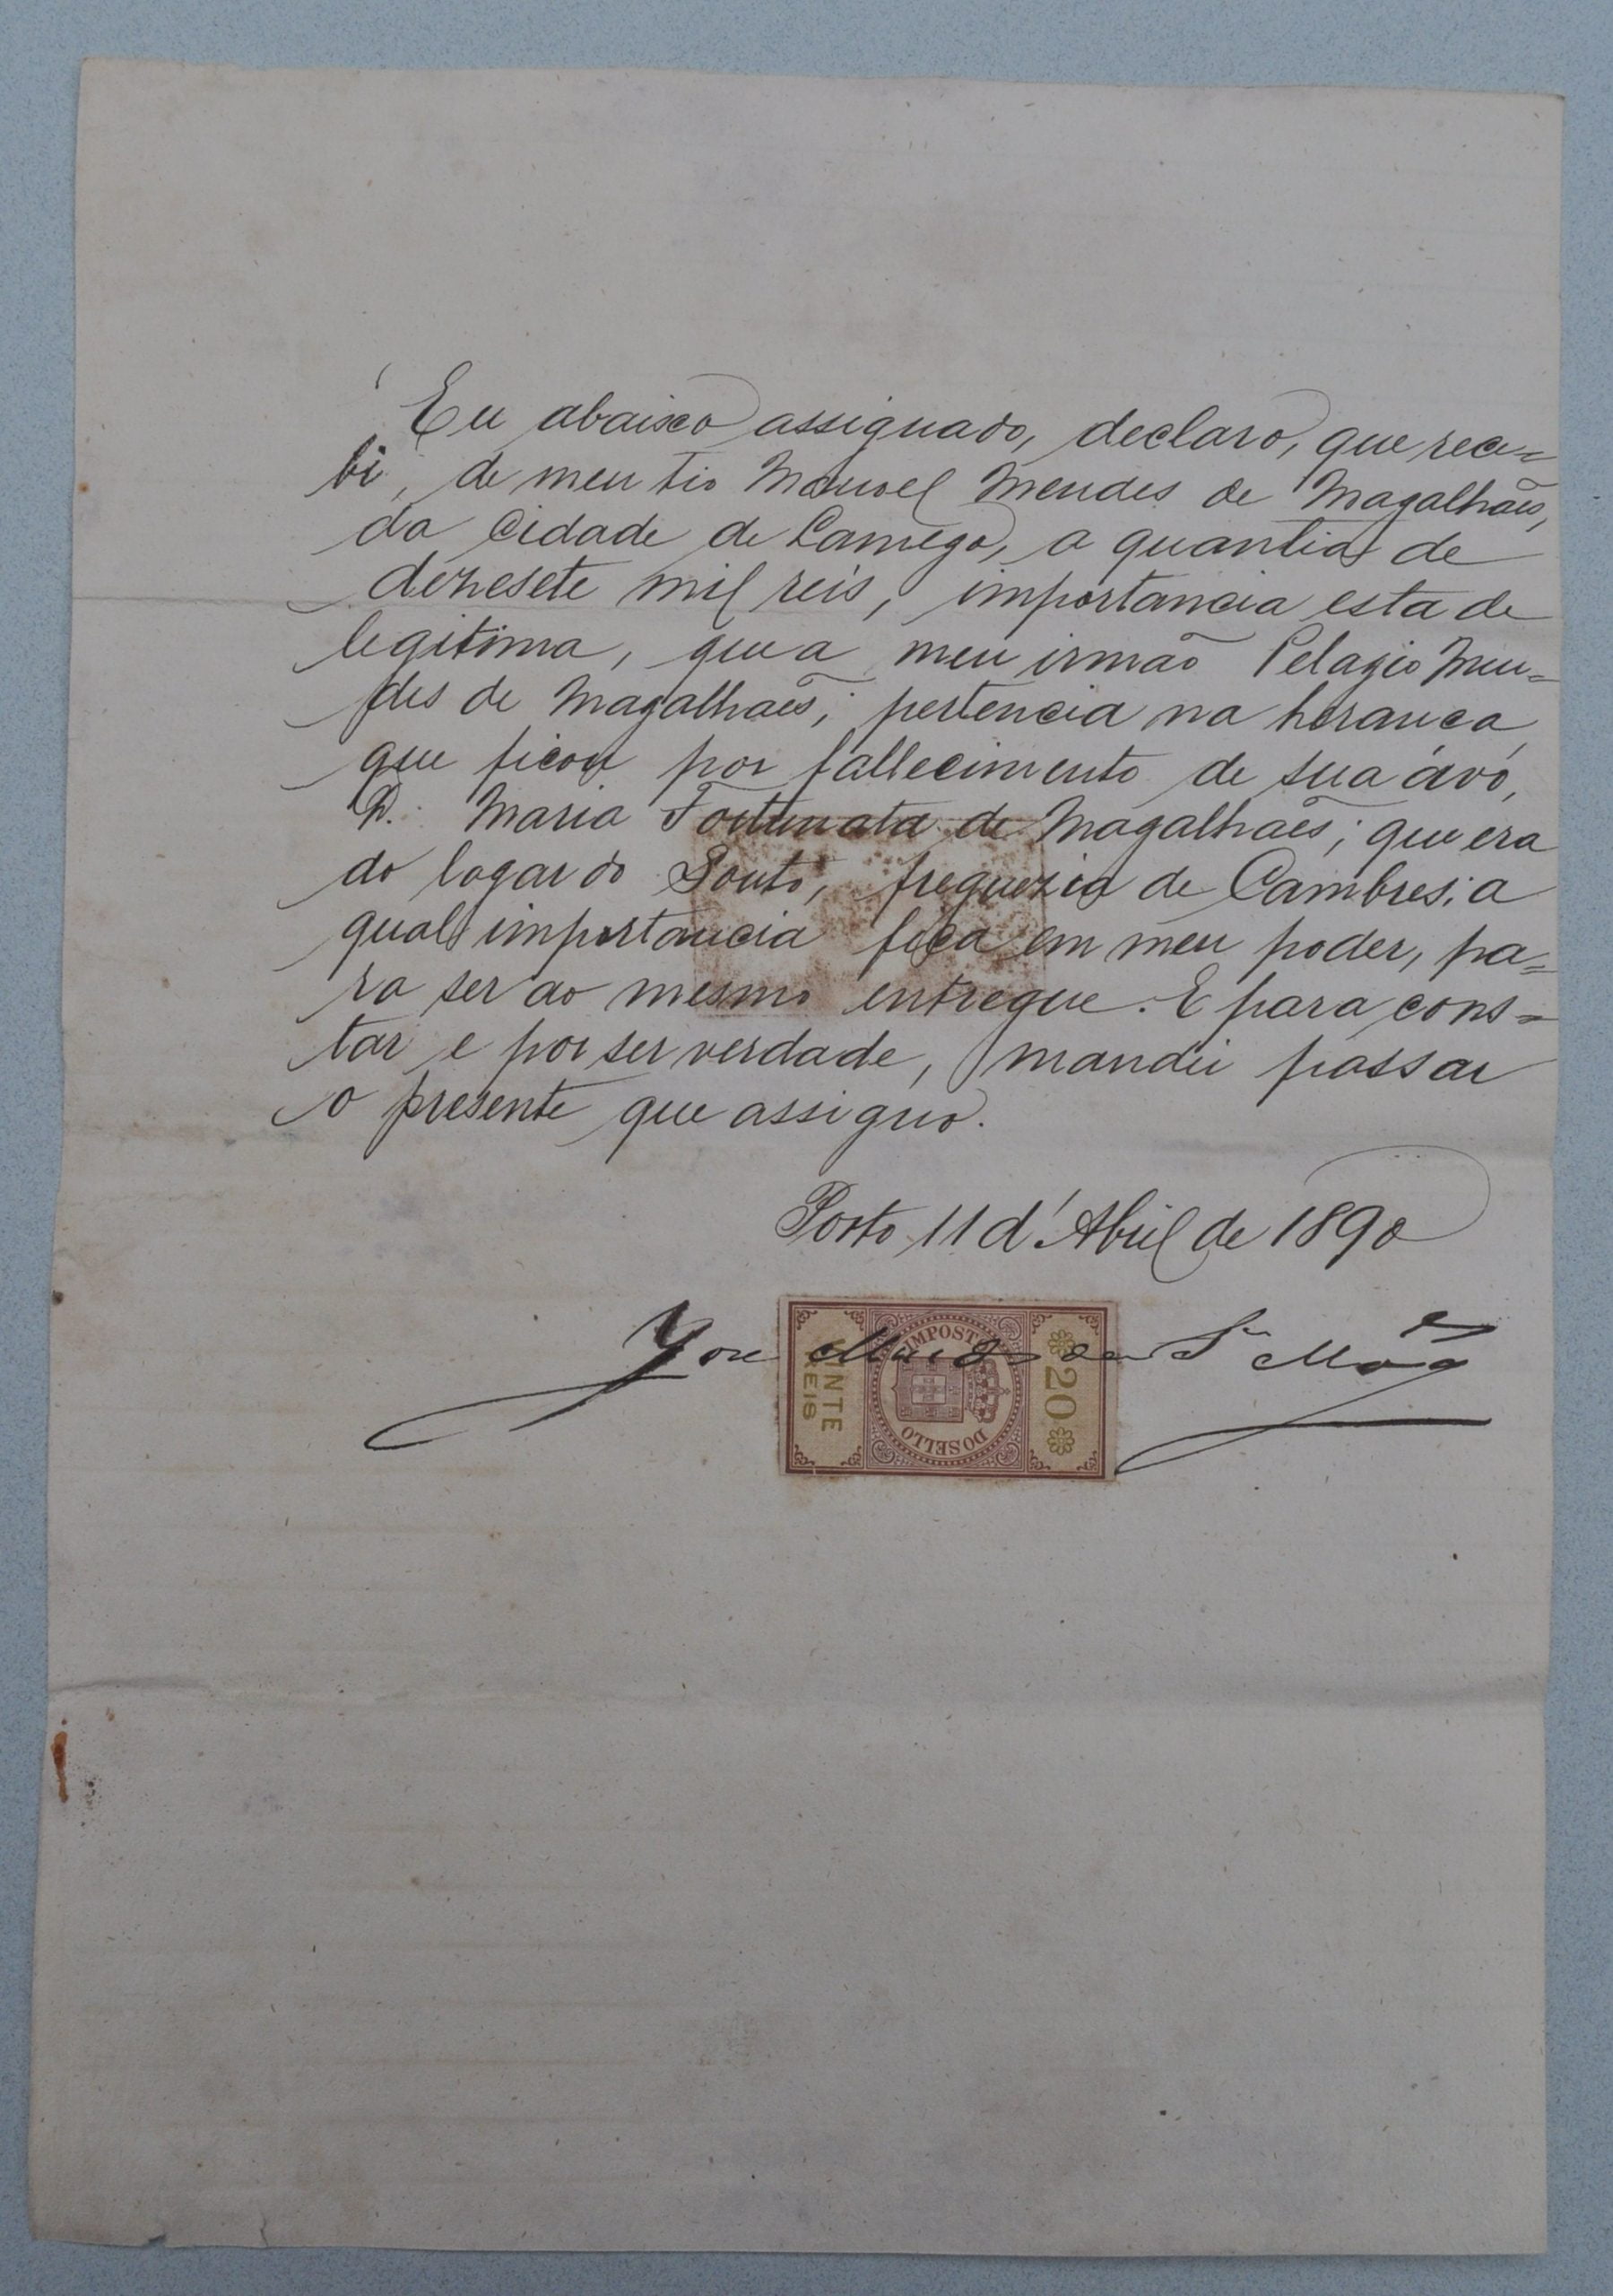 Eu abaixo assignado, declaro, que rece=
bi, de meu tio Manoel Mendes de Magalhães,
da Cidade de Lamego, a quantia de
dezesete mil reis, importancia esta de
legitima, que a meu irmão Pelagio Men=
des de Magalhães; pertencia na herança
que ficou por fallecimento de sua ávó,
D. Maria Fortunata de Magalhães; que era
do logar do Souto, freguezia de Cambres; a
qual importancia fica em meu poder, pa=
ra ser ao mesmo entregue. E para cons=
tar e por ser verdade, mandei passar
o presente que assigno.
Porto 11 d'Abril de 1890
José Mendes de
IMPOSTO
DO SELLO
VINTE
REIS
20